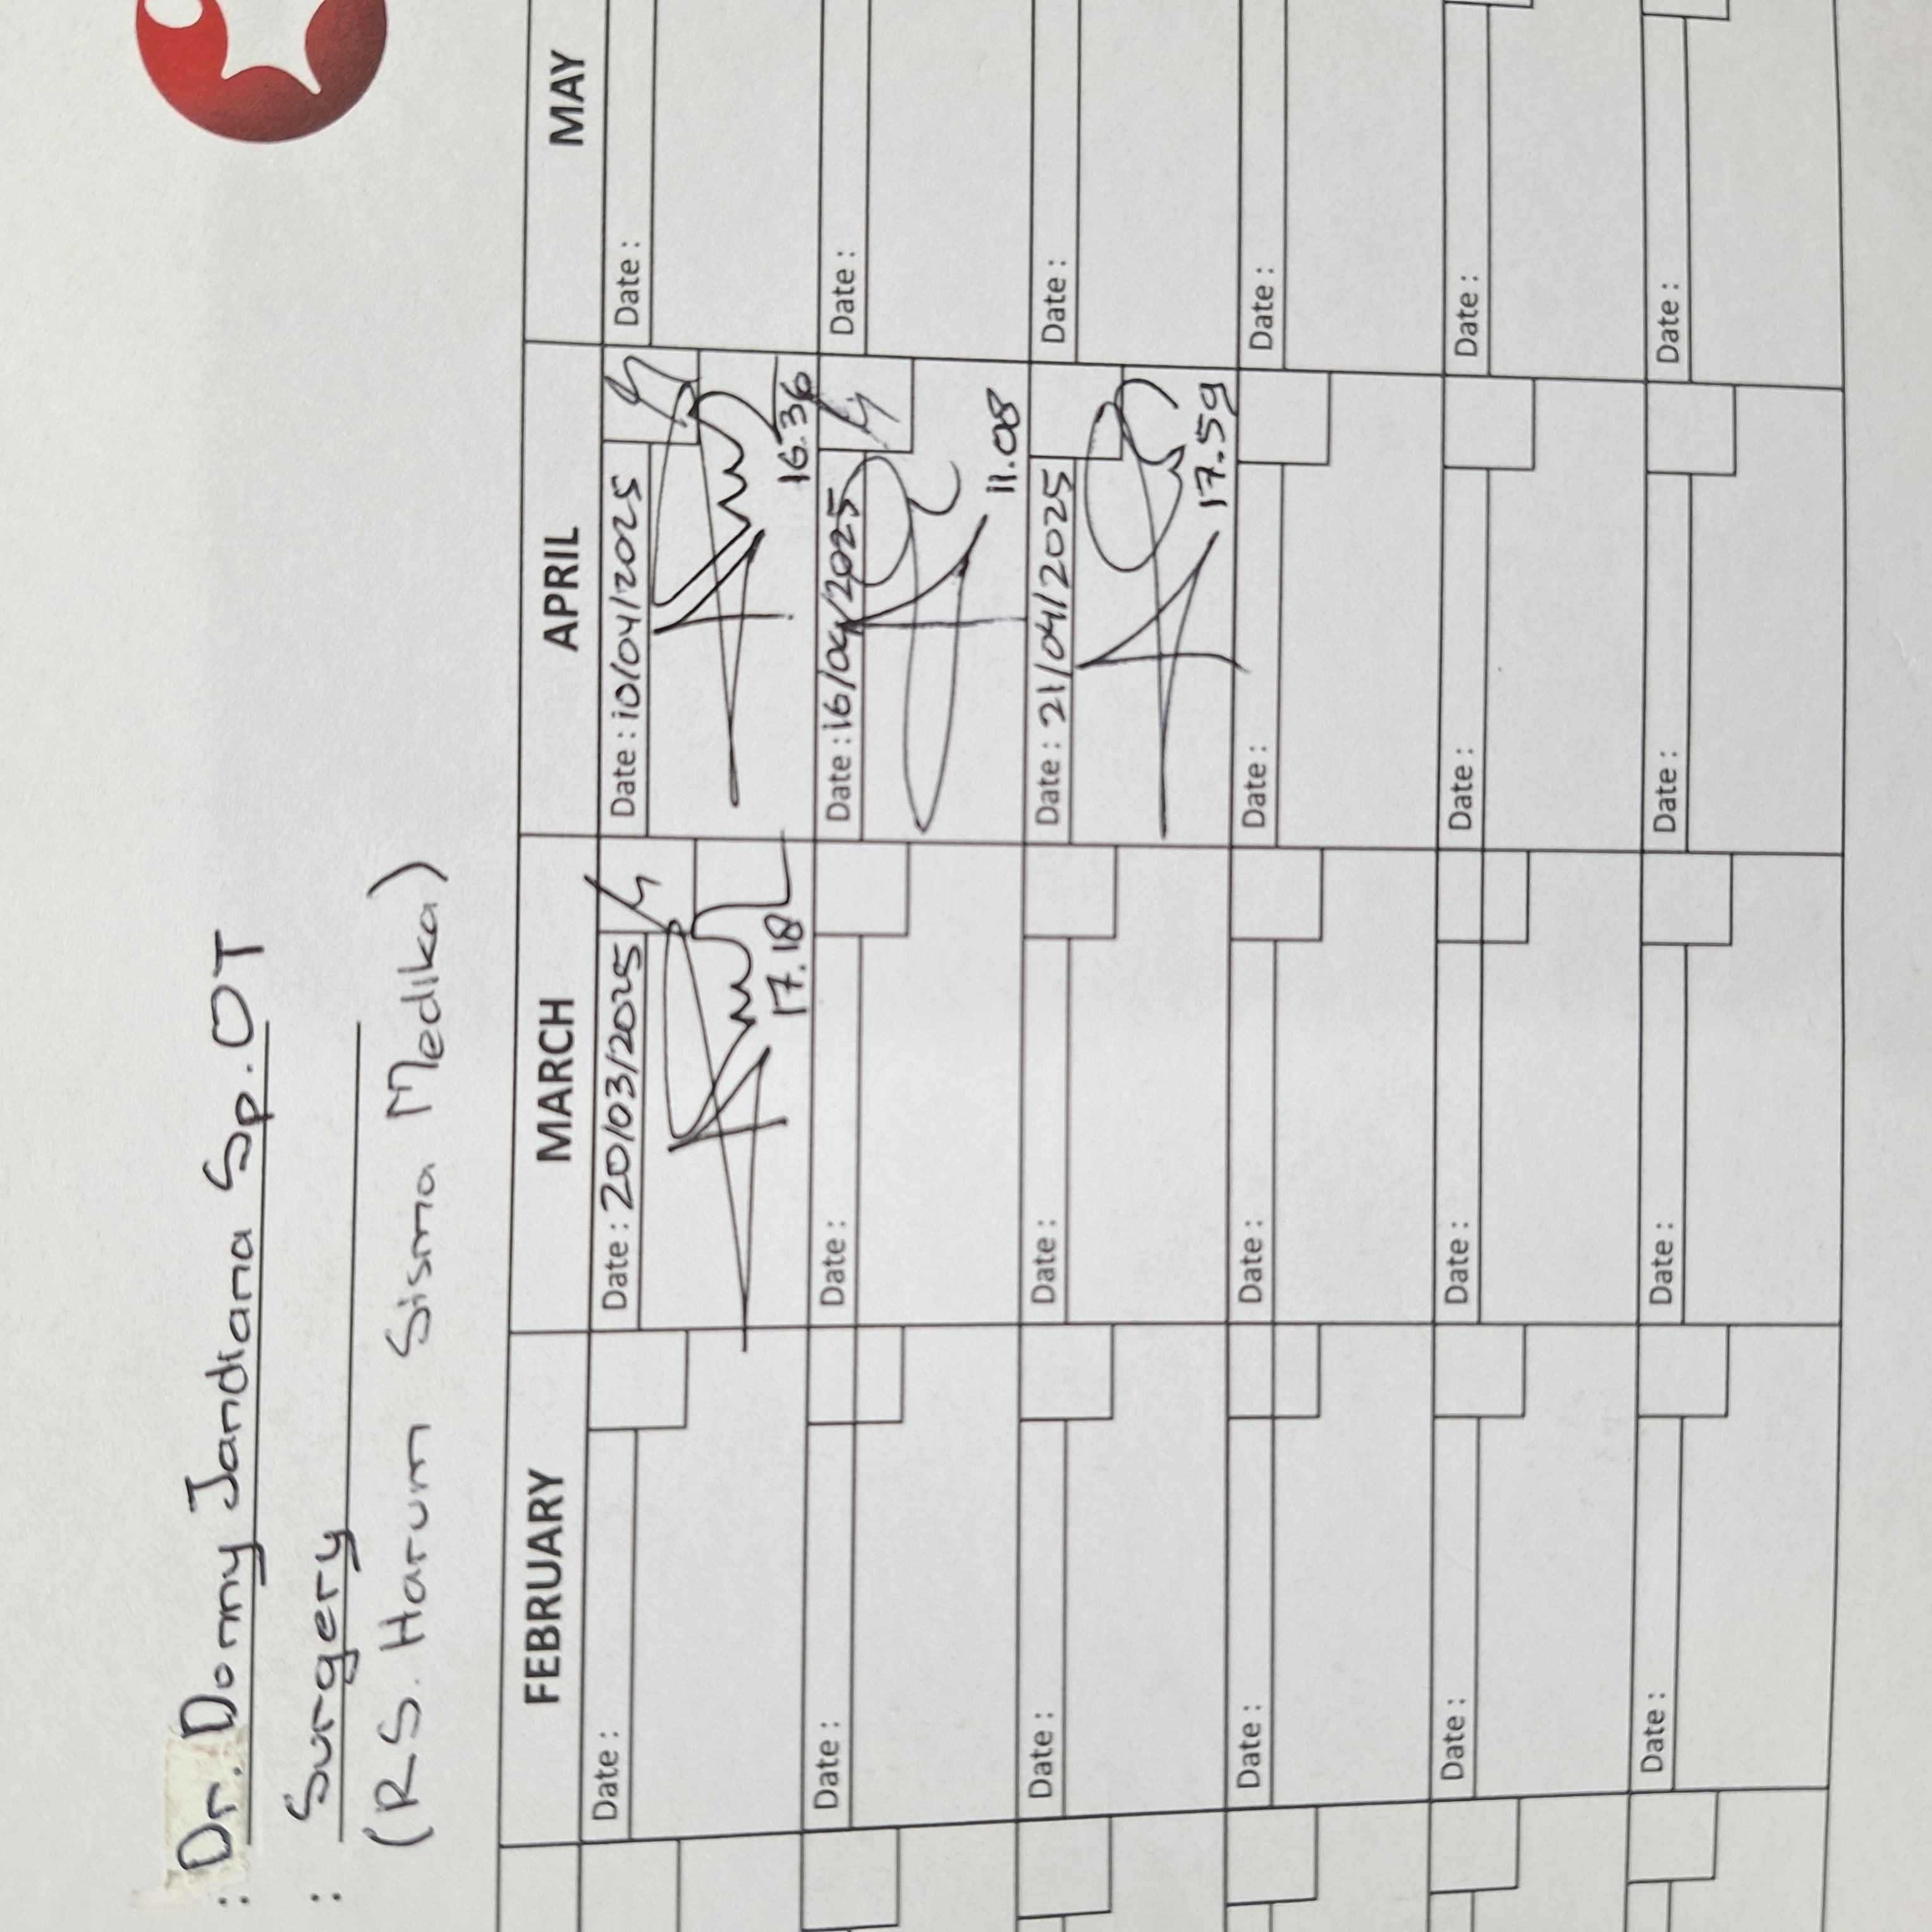 : Dr. Donny Jandiana Sp.OT
: Surgery
(RS. Harum Sisma Medika)
FEBRUARY MARCH APRIL MAY
Date : Date : 20/03/2025 Date : 10/04/2025 Date :
17.18 16.36
Date : Date : Date : 16/04/2025 Date :
11.08
Date : Date : Date : 21/04/2025 Date :
17.59
Date : Date : Date : Date :
Date : Date : Date : Date :
Date : Date : Date : Date :